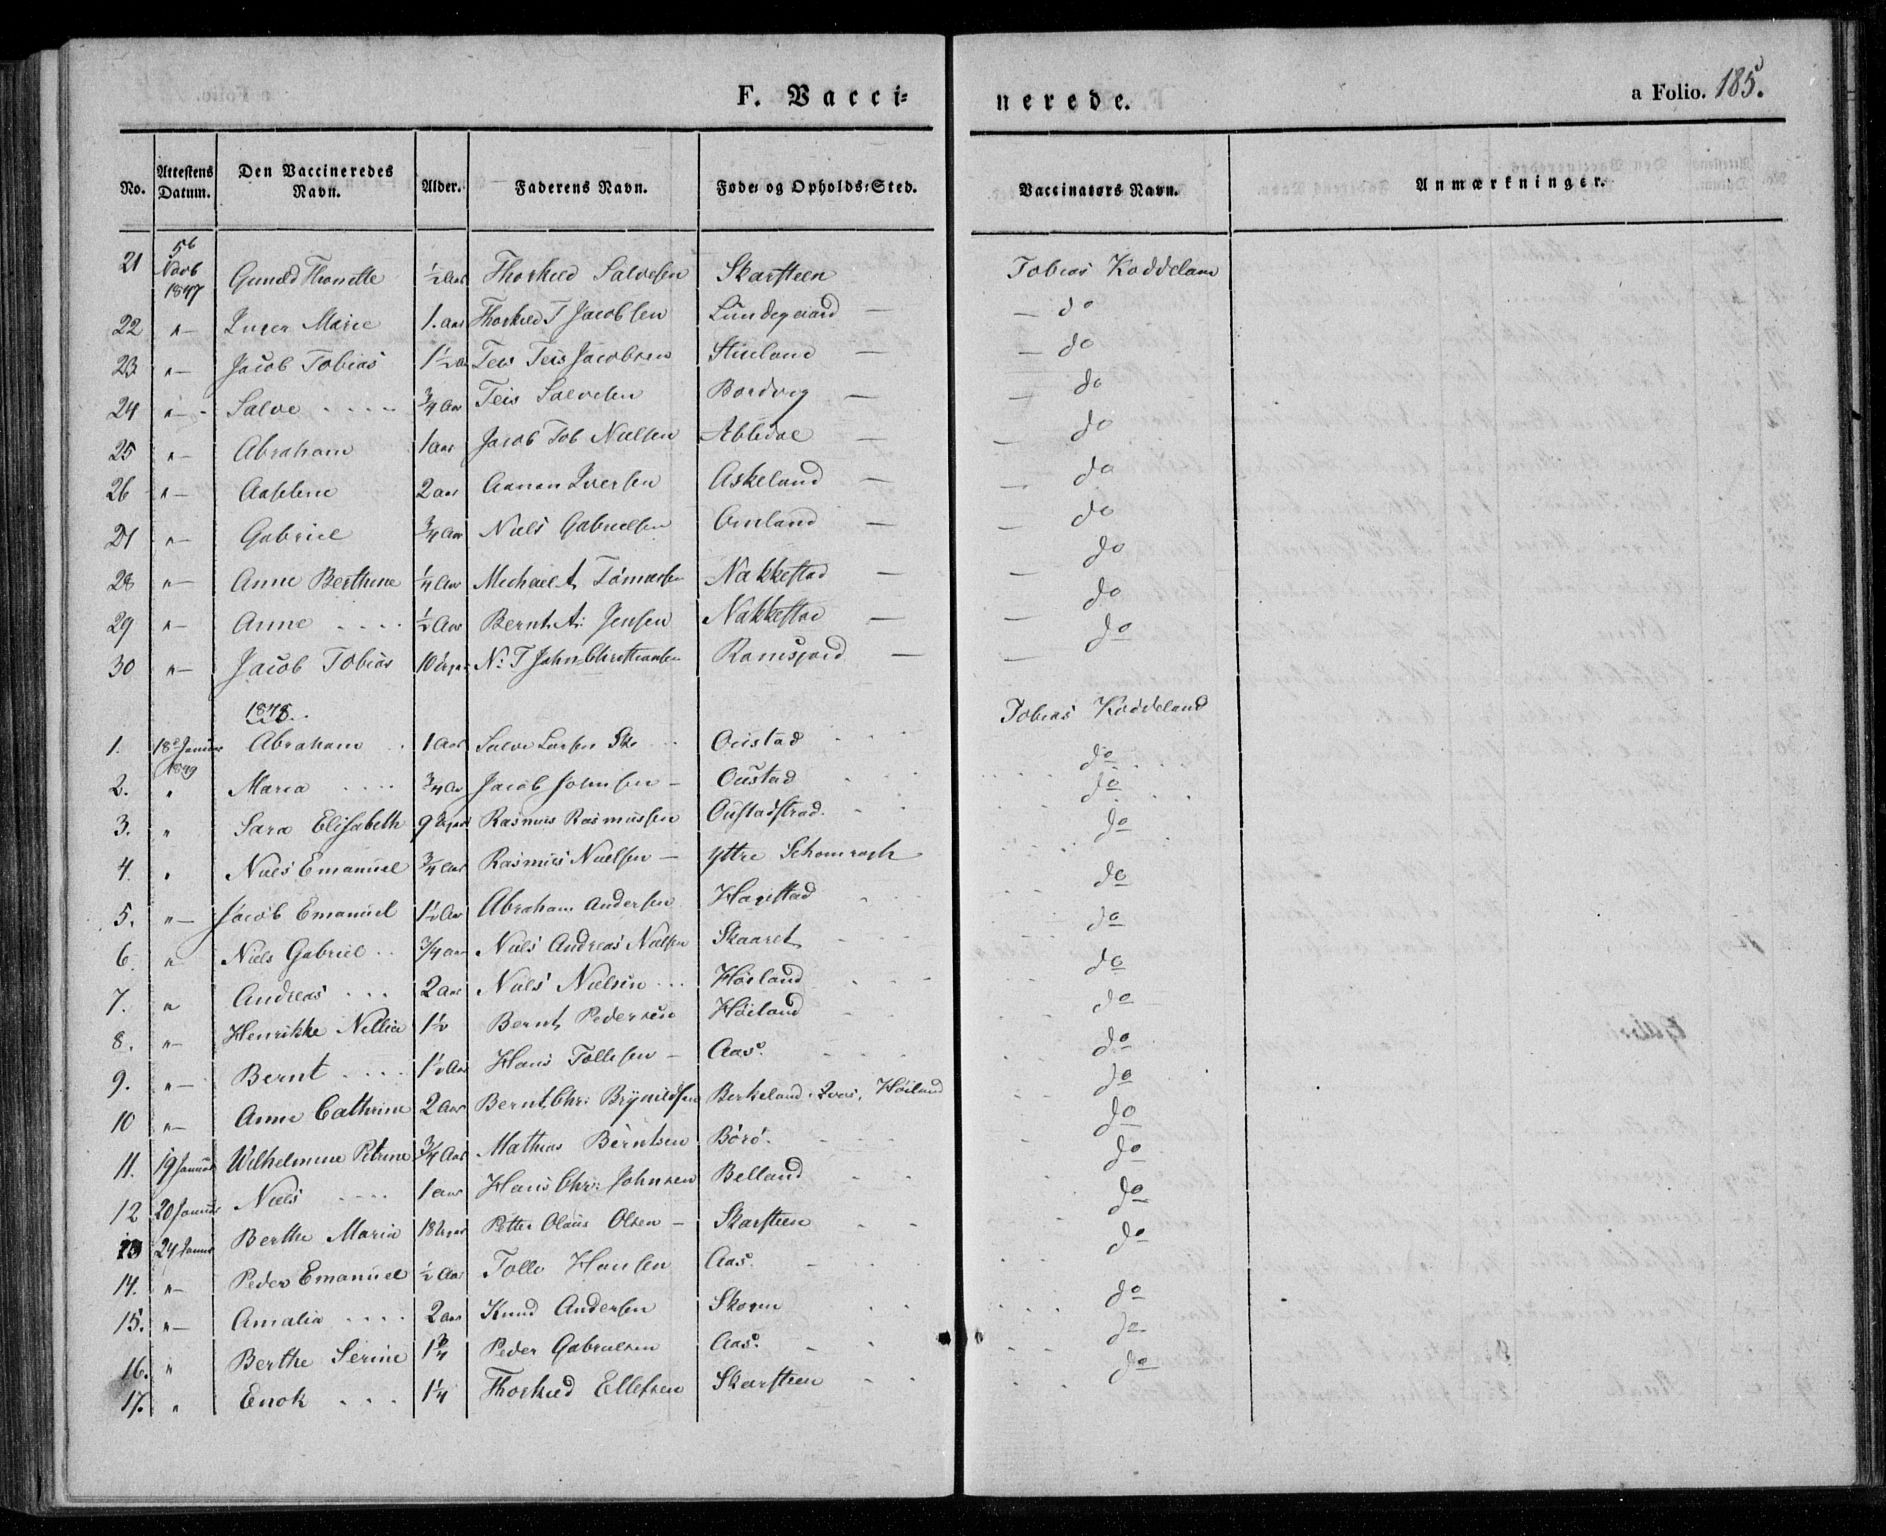 F. Vacci= nerede. a Folio. 185.
No. Attestens Datum. Den Vaccineredes Navn. Alder. Faderens Navn. Føde= og Opholds=Sted. Vaccinators Navn. Anmærkninger.
21 5 Novb 1847 Thonette ½ Aar Thorkild Salvesen Skarsteen Tobias Koddeland
22 "— Inger Marie 1. aar Thorkild T Jacobsen Lundegaard — — do
23 "— Jacob Tobias 1½ Teis Jacobsen — — do
24 "— Salve . . . . ¾ Aar Teis Salvesen Bordvig — — do
25 "— Abraham 1 aar Jacob Tob Nielsen — — do
26 "— 2 aar Aanon Iversen Askeland — — do
27 "— Gabriel ¾ Aar Niels Gabrielsen Omland — — do
28 "— Anne Berthine ¼ Aar Michael A. Nakkestad — — do
29 "— Anne . . . . ½ Aar Bernt A: Jensen Nakkestad — — do
30 "— Jacob Tobias 10 N: T John Christiansen — — do
1848. Tobias Koddeland
1. 18 Januar 1849 Abraham . 1 Aar Salve Larsen Oustad do
2. " Maria . . . . ¾ Aar Jacob Johnsen — Oustad do
3. " Sara Elisabeth 9 Rasmus Rasmussen Oustadstrad. do
4. " Niels Emanuel ¾ Aar Rasmus Nielsen — yttre do
5. "— Jacob Emanuel 1½ Aar Abraham Andersen do
6. " Niels Gabriel . . ¾ aar Niels Andreas Nielsen Skaaret do
7. " Andreas . . . 2 aar Niels Nielsen . . . Høiland do
8. "— Henrikke 1½ Bernt Pedersen Høiland do
9. "— Bernt . . . . 1½ Aar Hans Tollefsen — Aas. do
10 "— Anne Cathrine 2 Aar Bernt Chr: Brynildsen Birkeland, Høiland do
11. 19 Januar Wilhelmine Petrine ¾ Aar Mathias Berntsen Børø. do
12 20 Januar Niels . . . . 1 aar Hans Chr: Johnsen Belland do
13 24 Januar Berthe Maria 18 Petter Olaus Olsen — Skarsteen do
14. "— Peder Emanuel ½ Aar Tolle Hansen Aas. do
15. "— Amalia . . . . 2 aar Knud Andersen Skoven do
16. " Berthe Serine 1¾ Peder Gabrielsen Aas. do
17. " Enok . . . 1¼ Thorkild Ellefsen Skarsteen do